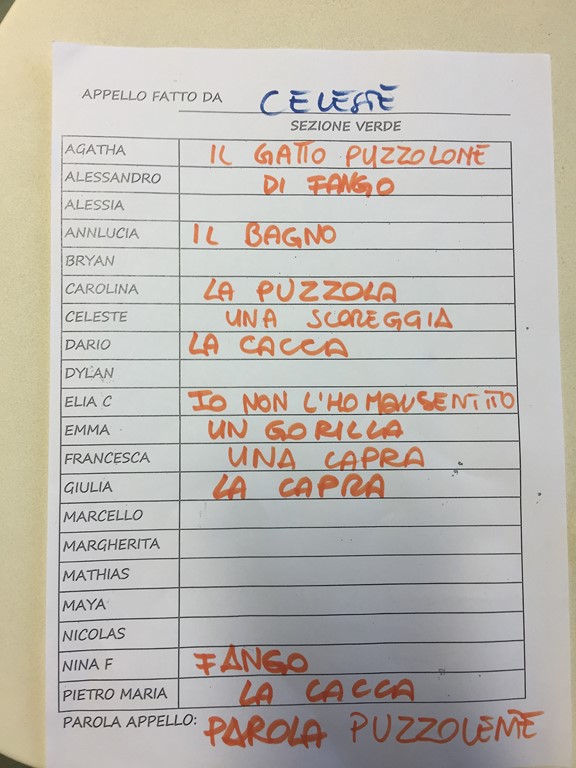 APPELLO FATTO DA CELESTE
SEZIONE VERDE
AGATHA IL GATTO PUZZOLONE
ALESSANDRO DI FANGO
ALESSIA
ANNLUCIA IL BAGNO
BRYAN
CAROLINA LA PUZZOLA
CELESTE UNA SCOREGGIA
DARIO LA CACCA
DYLAN
ELIA C IO NON L'HO MAI SENTITO
EMMA UN GORILLA
FRANCESCA UNA CAPRA
GIULIA LA CAPRA
MARCELLO
MARGHERITA
MATHIAS
MAYA
NICOLAS
NINA F FANGO
PIETRO MARIA LA CACCA
PAROLA APPELLO: PAROLA PUZZOLENTE